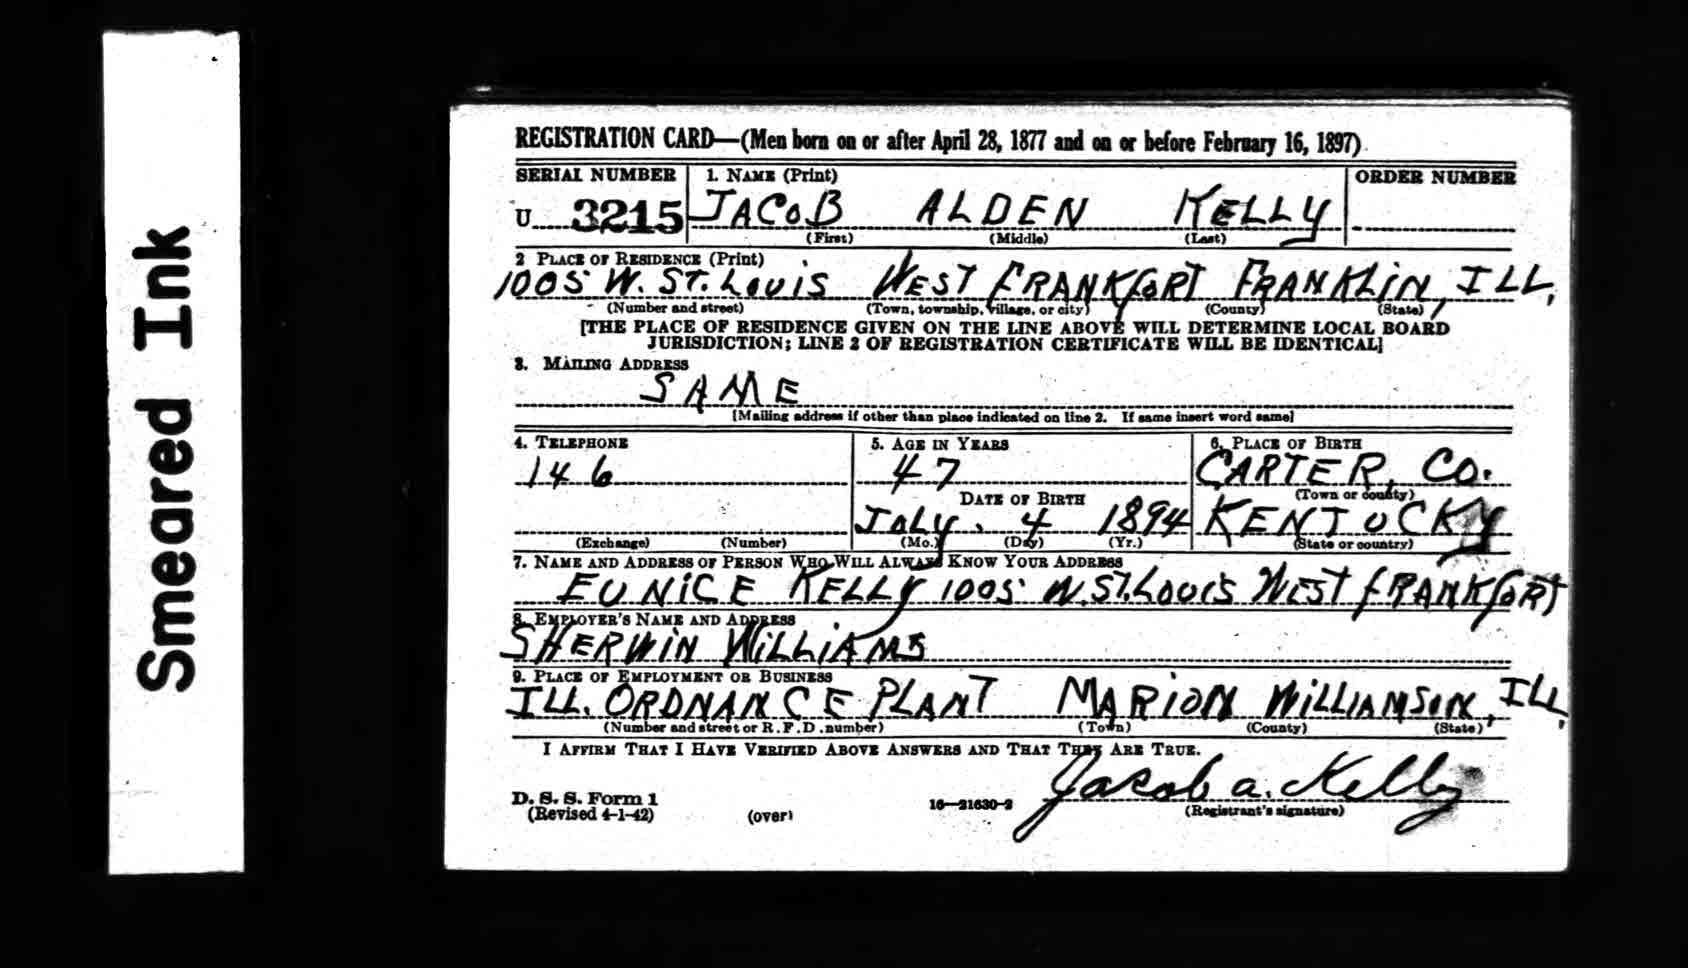 Smeared Ink
REGISTRATION CARD—(Men born on or after April 28, 1877 and on or before February 16, 1897)
SERIAL NUMBER 1. NAME (Print) ORDER NUMBER
U 3215 JACOB ALDEN KELLY
(First) (Middle) (Last)
2 PLACE OF RESIDENCE (Print)
1005 W. ST. LOUIS WEST FRANKFORT FRANKLIN, ILL.
(Number and street) (Town, township, village, or city) (County) (State)
[THE PLACE OF RESIDENCE GIVEN ON THE LINE ABOVE WILL DETERMINE LOCAL BOARD
JURISDICTION; LINE 2 OF REGISTRATION CERTIFICATE WILL BE IDENTICAL]
3. MAILING ADDRESS
SAME
[Mailing address if other than place indicated on line 2. If same insert word same]
4. TELEPHONE 5. AGE IN YEARS 6. PLACE OF BIRTH
146 47 CARTER, CO.
DATE OF BIRTH (Town or county)
JULY. 4 1894 KENTUCKY
(Exchange) (Number) (Mo.) (Day) (Yr.) (State or country)
7. NAME AND ADDRESS OF PERSON WHO WILL ALWAYS KNOW YOUR ADDRESS
EUNICE KELLY 1005 W. ST. LOUIS WEST FRANKFORT
8. EMPLOYER'S NAME AND ADDRESS
SHERWIN WILLIAMS
9. PLACE OF EMPLOYMENT OR BUSINESS
ILL. ORDNANCE PLANT MARION WILLIAMSON, ILL.
(Number and street or R. F. D. number) (Town) (County) (State)
I AFFIRM THAT I HAVE VERIFIED ABOVE ANSWERS AND THAT THEY ARE TRUE.
Jacob a. Kelly
D. S. S. Form 1 16—21630-2 (Registrant's signature)
(Revised 4-1-42) (over)